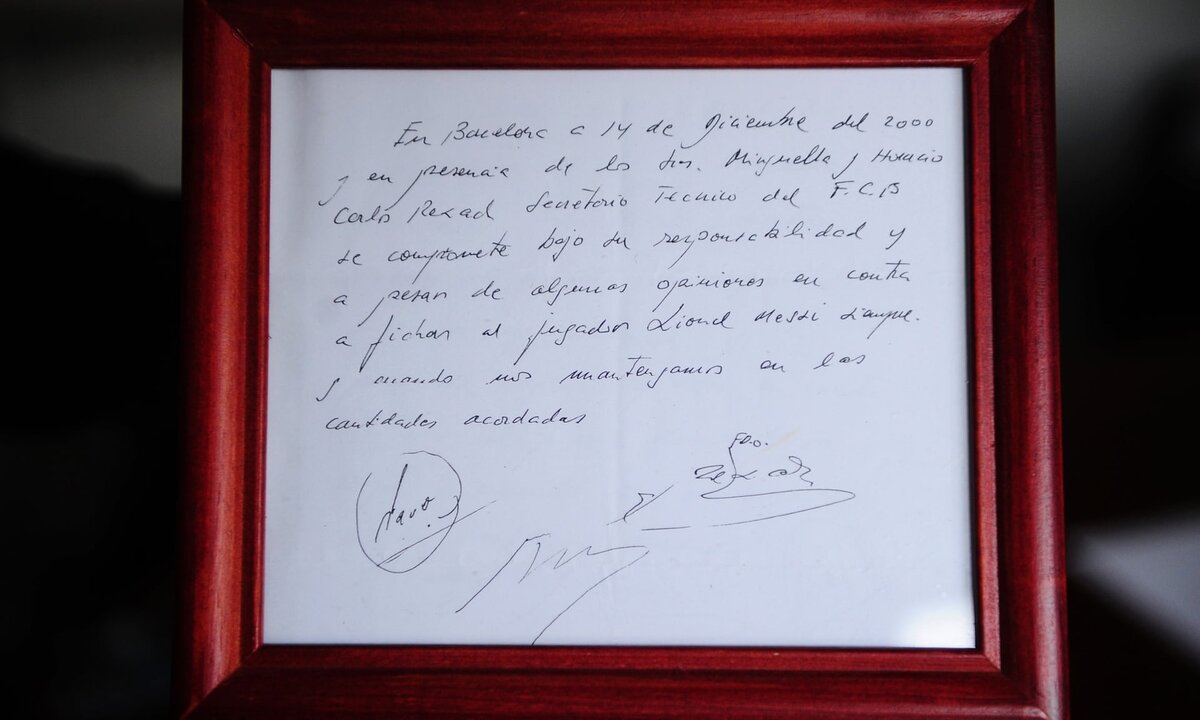 En Barcelona a 14 de Diciembre del 2000
y en presencia de los Srs. Minguella y Horacio
Carlos Rexach Secretario Técnico del F.C.B
se compromete bajo su responsabilidad y
a pesar de algunas opiniones en contra
a fichar al jugador Lionel Messi siempre.
y cuando nos mantengamos en las
cantidades acordadas
Fdo.
Rexach